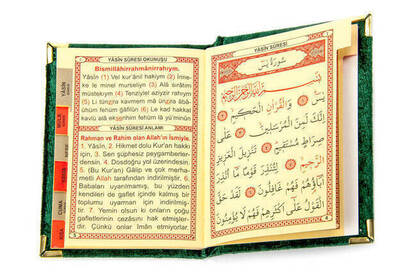 YÂSİN SÛRESİ OKUNUŞU
Bismillâhirrahmânirrahıym.
Yâsîn (1) Vel kur'ânil hakiym (2) İnne-
ke le minel murseliyn (3) Alâ sırâtım
müstekıym (4) Tenziylel aziyzir rahıym
(5) Li
kavmem mâ
âbâ-
ühüm fehüm ğâfilûn (6) Le kad hakkal
kavlü alâ
fehüm lâ yü'minûn (7)
YÂSİN SÛRESİ ANLAMI
Rahman ve Rahim olan Allah'ın İsmiyle.
1. Yâsîn, 2. Hikmet dolu Kur'an hakkı
için, 3. Sen şüphesiz peygamberler-
densin. 4. Dosdoğru yol üzerindesin.
5. (Bu Kur'an) Gâlip ve çok merha-
metli Allah tarafından indirilmiştir. 6.
Babaları uyarılmamış, bu yüzden
kendileri de gaflet içinde kalmış bir
toplumu uyarman için indirilmiş-
dir. 7. Yemin olsun ki onların çoğu
gafletlerinin cezasını hak etmişler-
dir. Çünkü onlar îman etmiyorlar.
YÂSİN
CUMA
YÂSİN SÛRESİ
سُورَةُ يٰسٓ
بِسْمِ اللّٰهِ الرَّحْمٰنِ الرَّحِيمِ
يٰسٓ وَالْقُرْاٰنِ الْحَكِيمِ
اِنَّكَ لَمِنَ الْمُرْسَلِينَ عَلٰى
صِرَاطٍ مُسْتَقِيمٍ تَنْزِيلَ الْعَزِيزِ
الرَّحِيمِ لِتُنْذِرَ قَوْمًا مَٓا اُنْذِرَ
اٰبَٓاؤُهُمْ فَهُمْ غَافِلُونَ لَقَدْ حَقَّ
الْقَوْلُ عَلٰٓى اَكْثَرِهِمْ فَهُمْ لَا يُؤْمِنُونَ